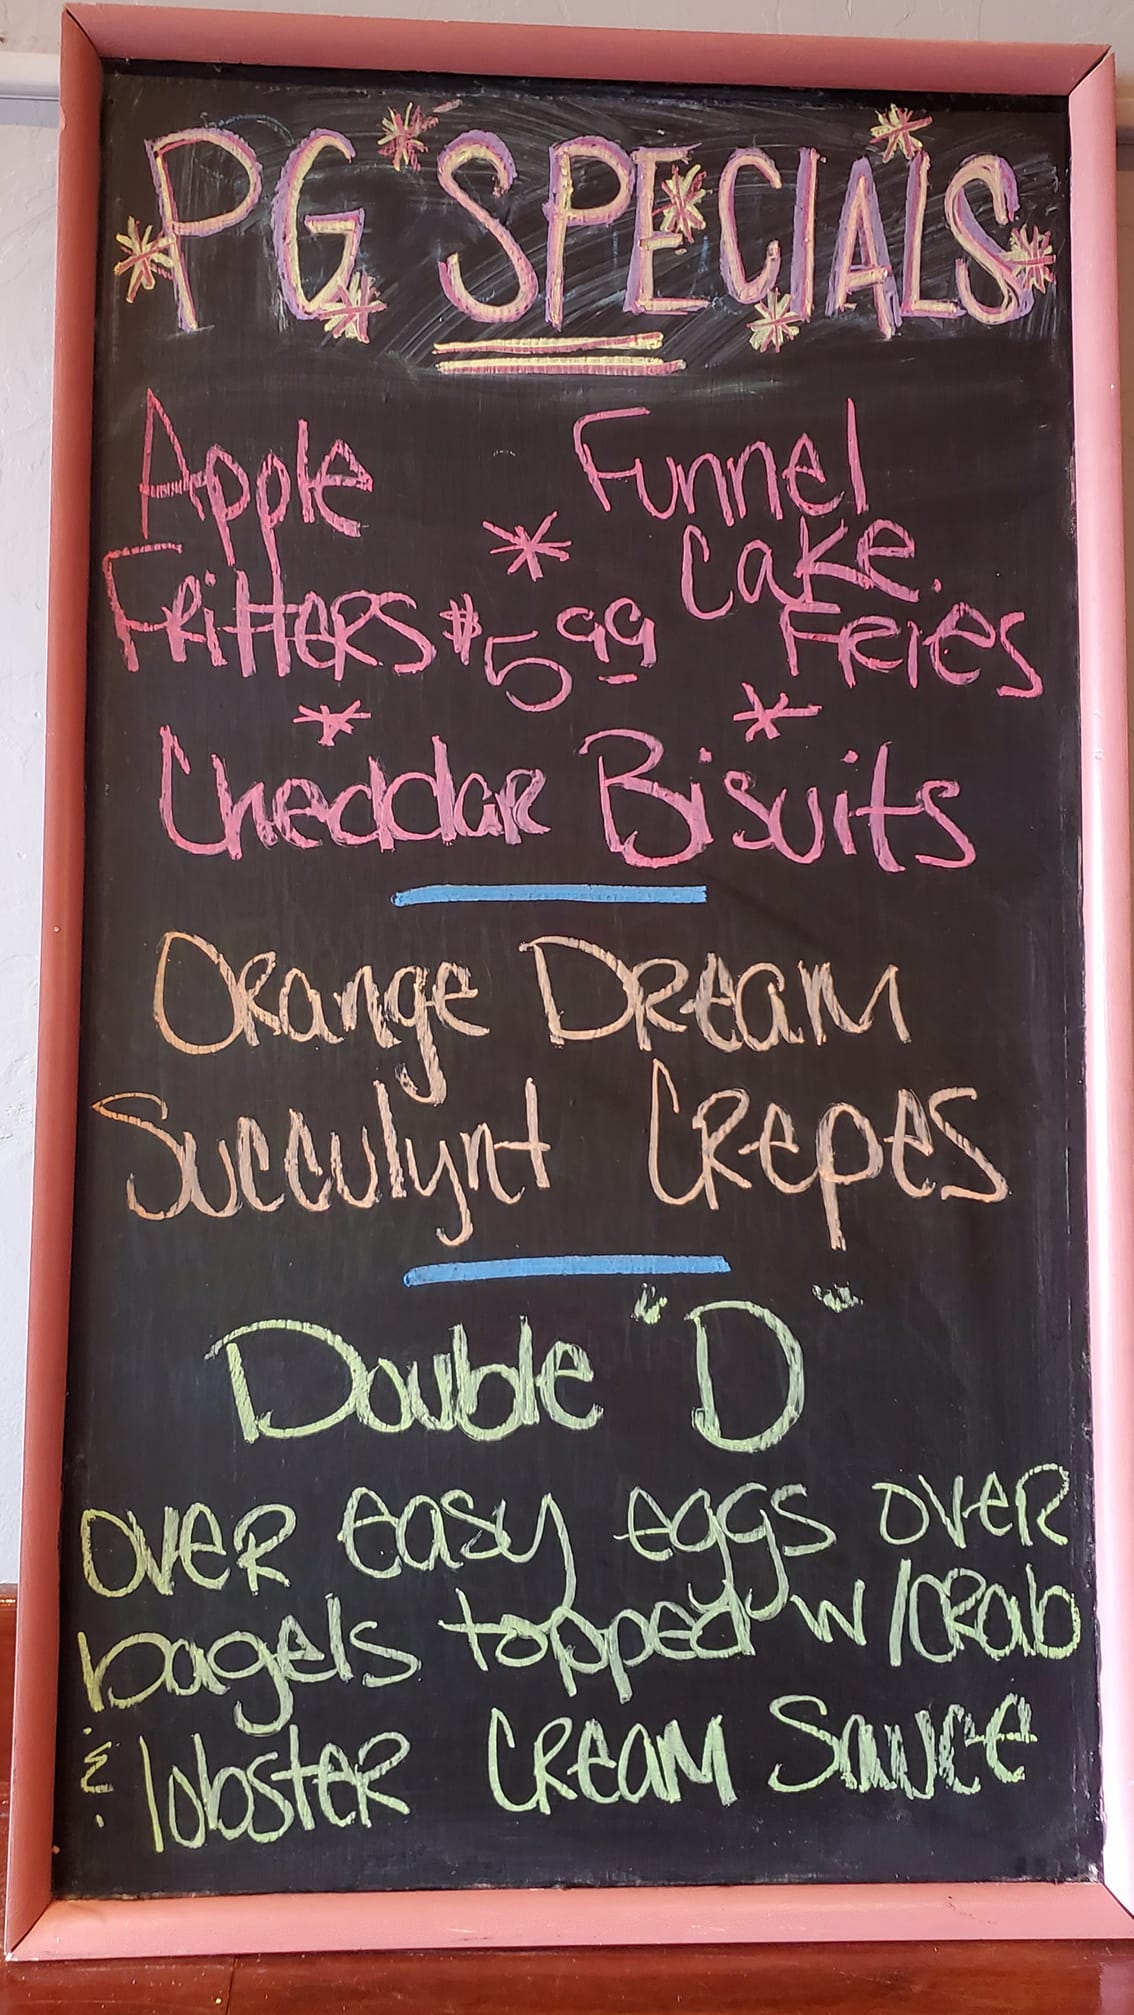 PG SPECIALS
Apple Funnel
Cake
Fritters $5.99 Fries
Cheddar Bisuits
Orange Dream
Succulynt Crepes
Double "D"
over easy eggs over
bagels topped w/crab
& lobster cream sauce